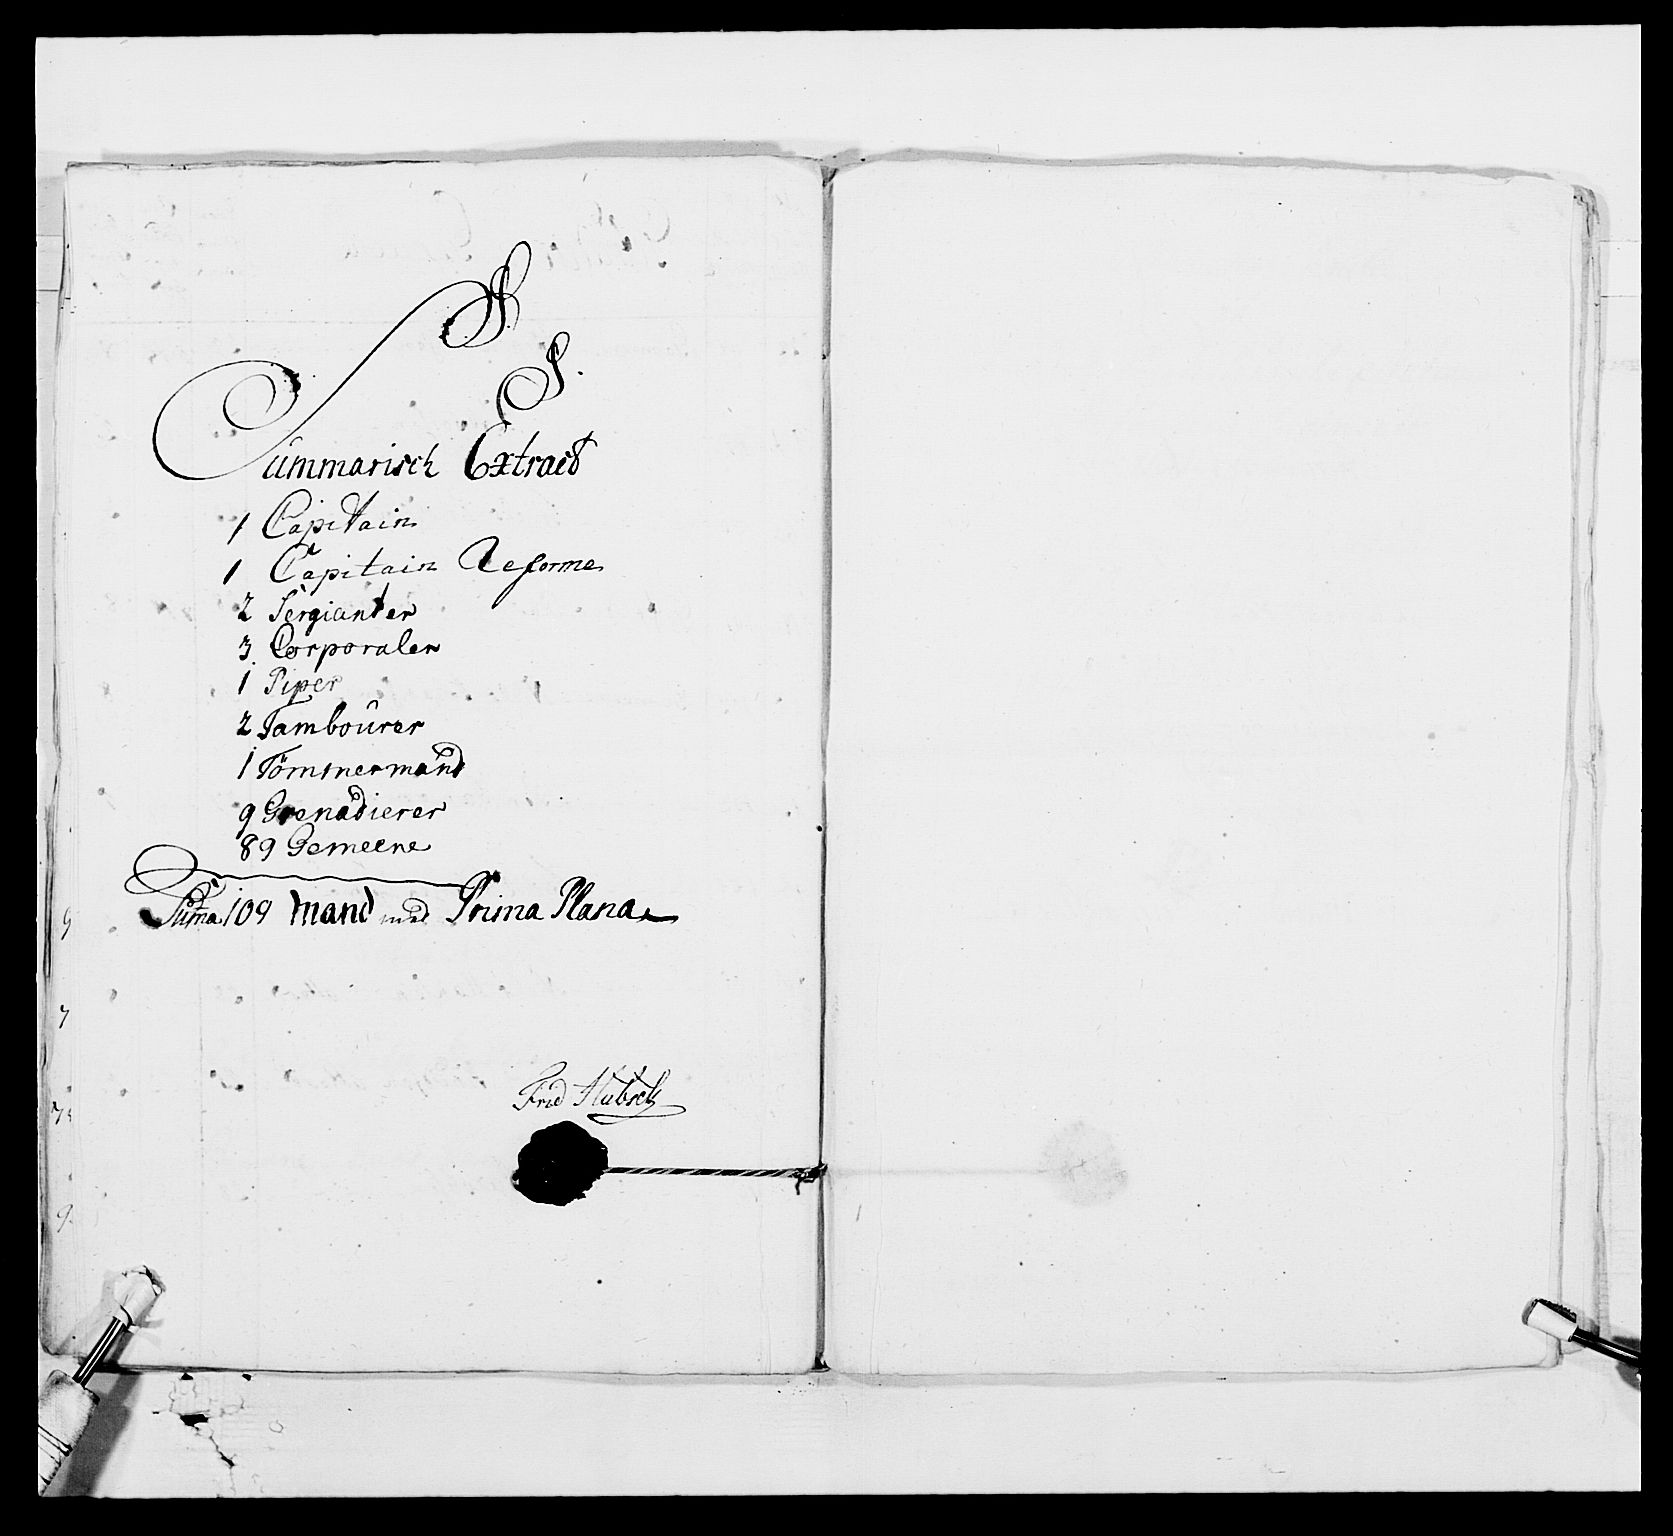 Summarisch Extract
1 Capitain
1 Capitain Reforme
2 Sergianter
3 Corporaler
1 Piper
2 Tambourer
1 Tömmermand
9 Grenadierer
89 Gemeene
Suma 109 Mand med Prima Plana
Frid Hübsch
9
7
9